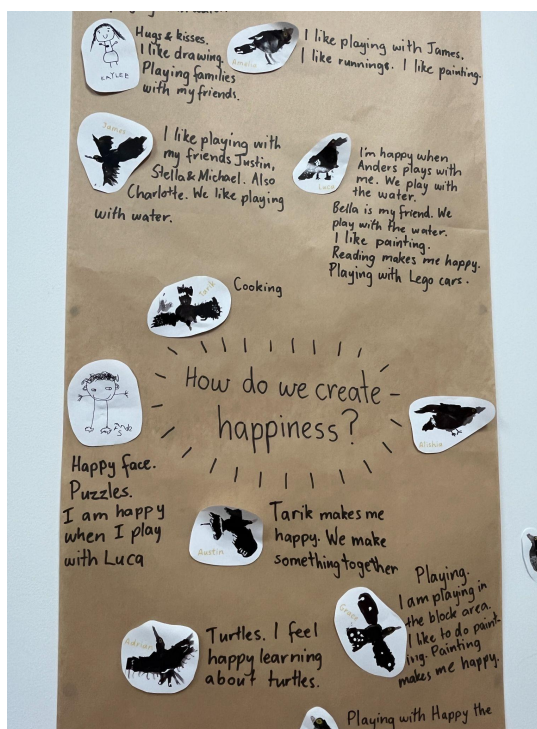 Hugs & kisses.
I like drawing.
Playing families
with my friends.
KAYLEE
Amelia
I like playing with James.
I like runnings. I like painting.
James
I like playing with
my friends Justin,
Stella & Michael. Also
Charlotte. We like playing
with water.
Luca
I'm happy when
Anders plays with
me. We play with
the water.
Bella is my friend. We
play with the water.
I like painting.
Reading makes me happy.
Playing with Lego cars.
Tarik
Cooking
How do we create -
happiness?
Happy face.
Puzzles.
I am happy
when I play
with Luca
Austin
Tarik makes me
happy. We make
something together
Grace
Playing.
I am playing in
the block area.
I like to do paint-
ing. Painting
makes me happy.
Adrian
Turtles. I feel
happy learning
about turtles.
Playing with Happy the